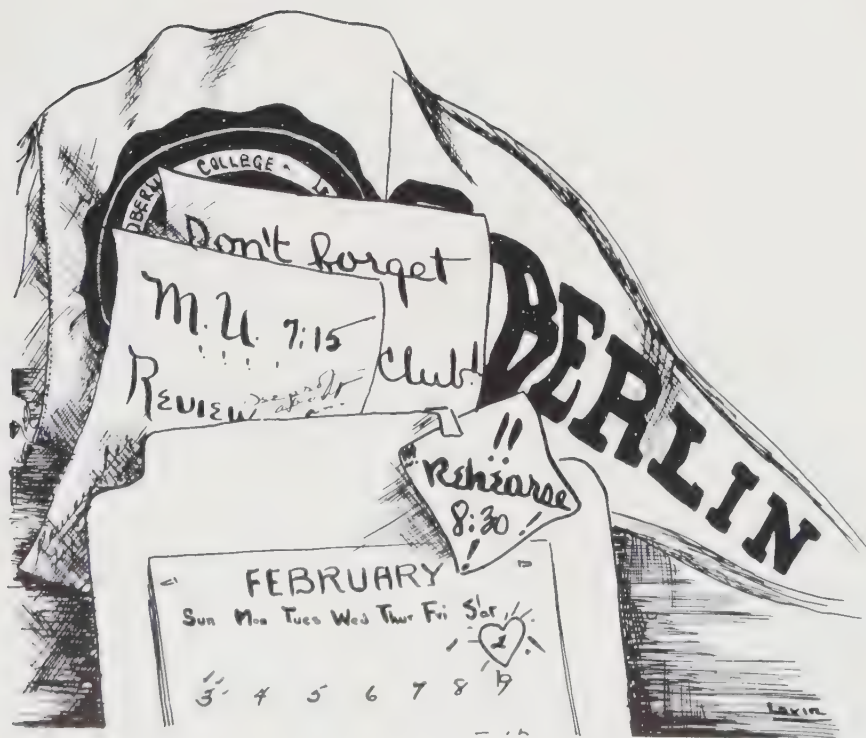 OBERL
COLLEGE
Don't forget
Club!
M.U. 7:15
REVIEW
BERLIN
!!
Rehearse
8:30 !
!
FEBRUARY
Sun Mon Tues Wed Thur Fri Sat
2
3 4 5 6 7 8 9
Lakin